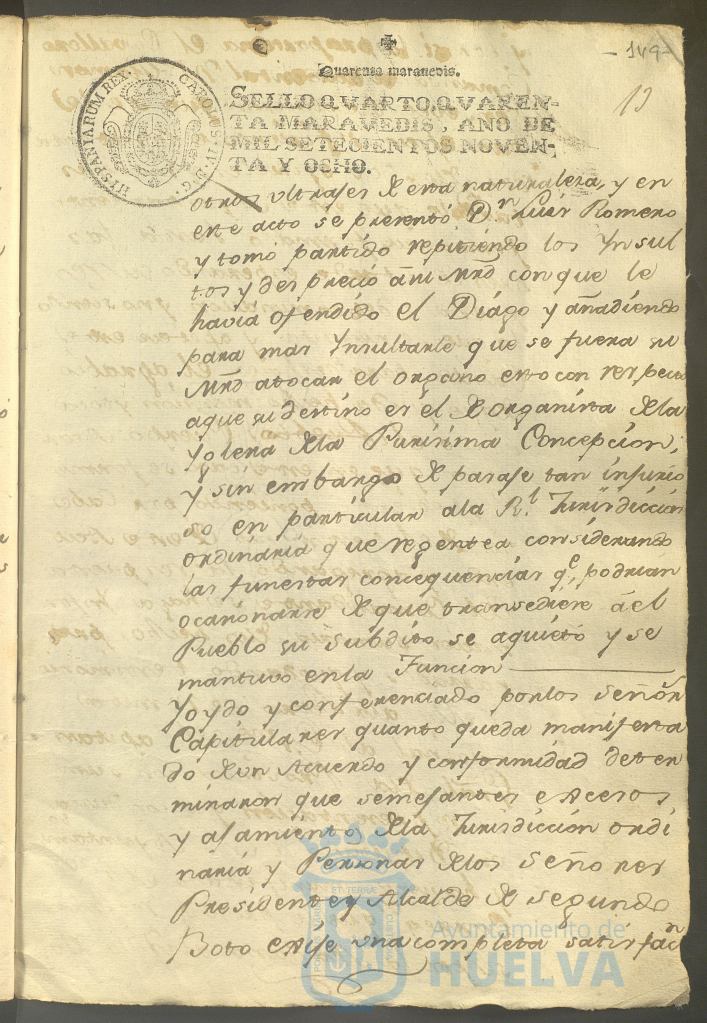 - 149 -
13
Quarenta maravedis.
SELLO QVARTO, QVAREN-
TA MARAVEDIS, AÑO DE
MIL SETECIENTOS NOVEN-
TA Y OCHO.
CAROLUS · IV · D · G · HISPANIARUM REX ·
otros ultrajes de esta naturaleza, y en
este acto se presentó Dn. Luis Romero
y tomó partido repitiendo los Ynsul
tos y despreció á su Mrd con que le
havia ofendido el Diágo y añadiendo
para mas Ynsultarle que se fuera su
Mrd atocar el organo esto con respecto
aque su destino es el de organista de la
Yglesia de la Purísima Concepcion,
y sin embargo de paraje tan injurio
so en particular ala Rl. Jurisdiccion
ordinaria que regentea considerando
las funestas concequencias qe. podrian
ocasionarse de que transediese á el
Pueblo su subdito se aquietó y se
mantuvo en la Funcion
Yoydo y conferenciado por los Señors
Capitulares quanto queda manifesta
do de un Acuerdo y conformidad deter
minaron que semejantes exceros
y ajamientos de la Jurisdiccion ordi
naria y Personas de los Señores
Presidente y Alcalde de segundo
Boto exije una completa satisfacn
Ayuntamiento de
HUELVA